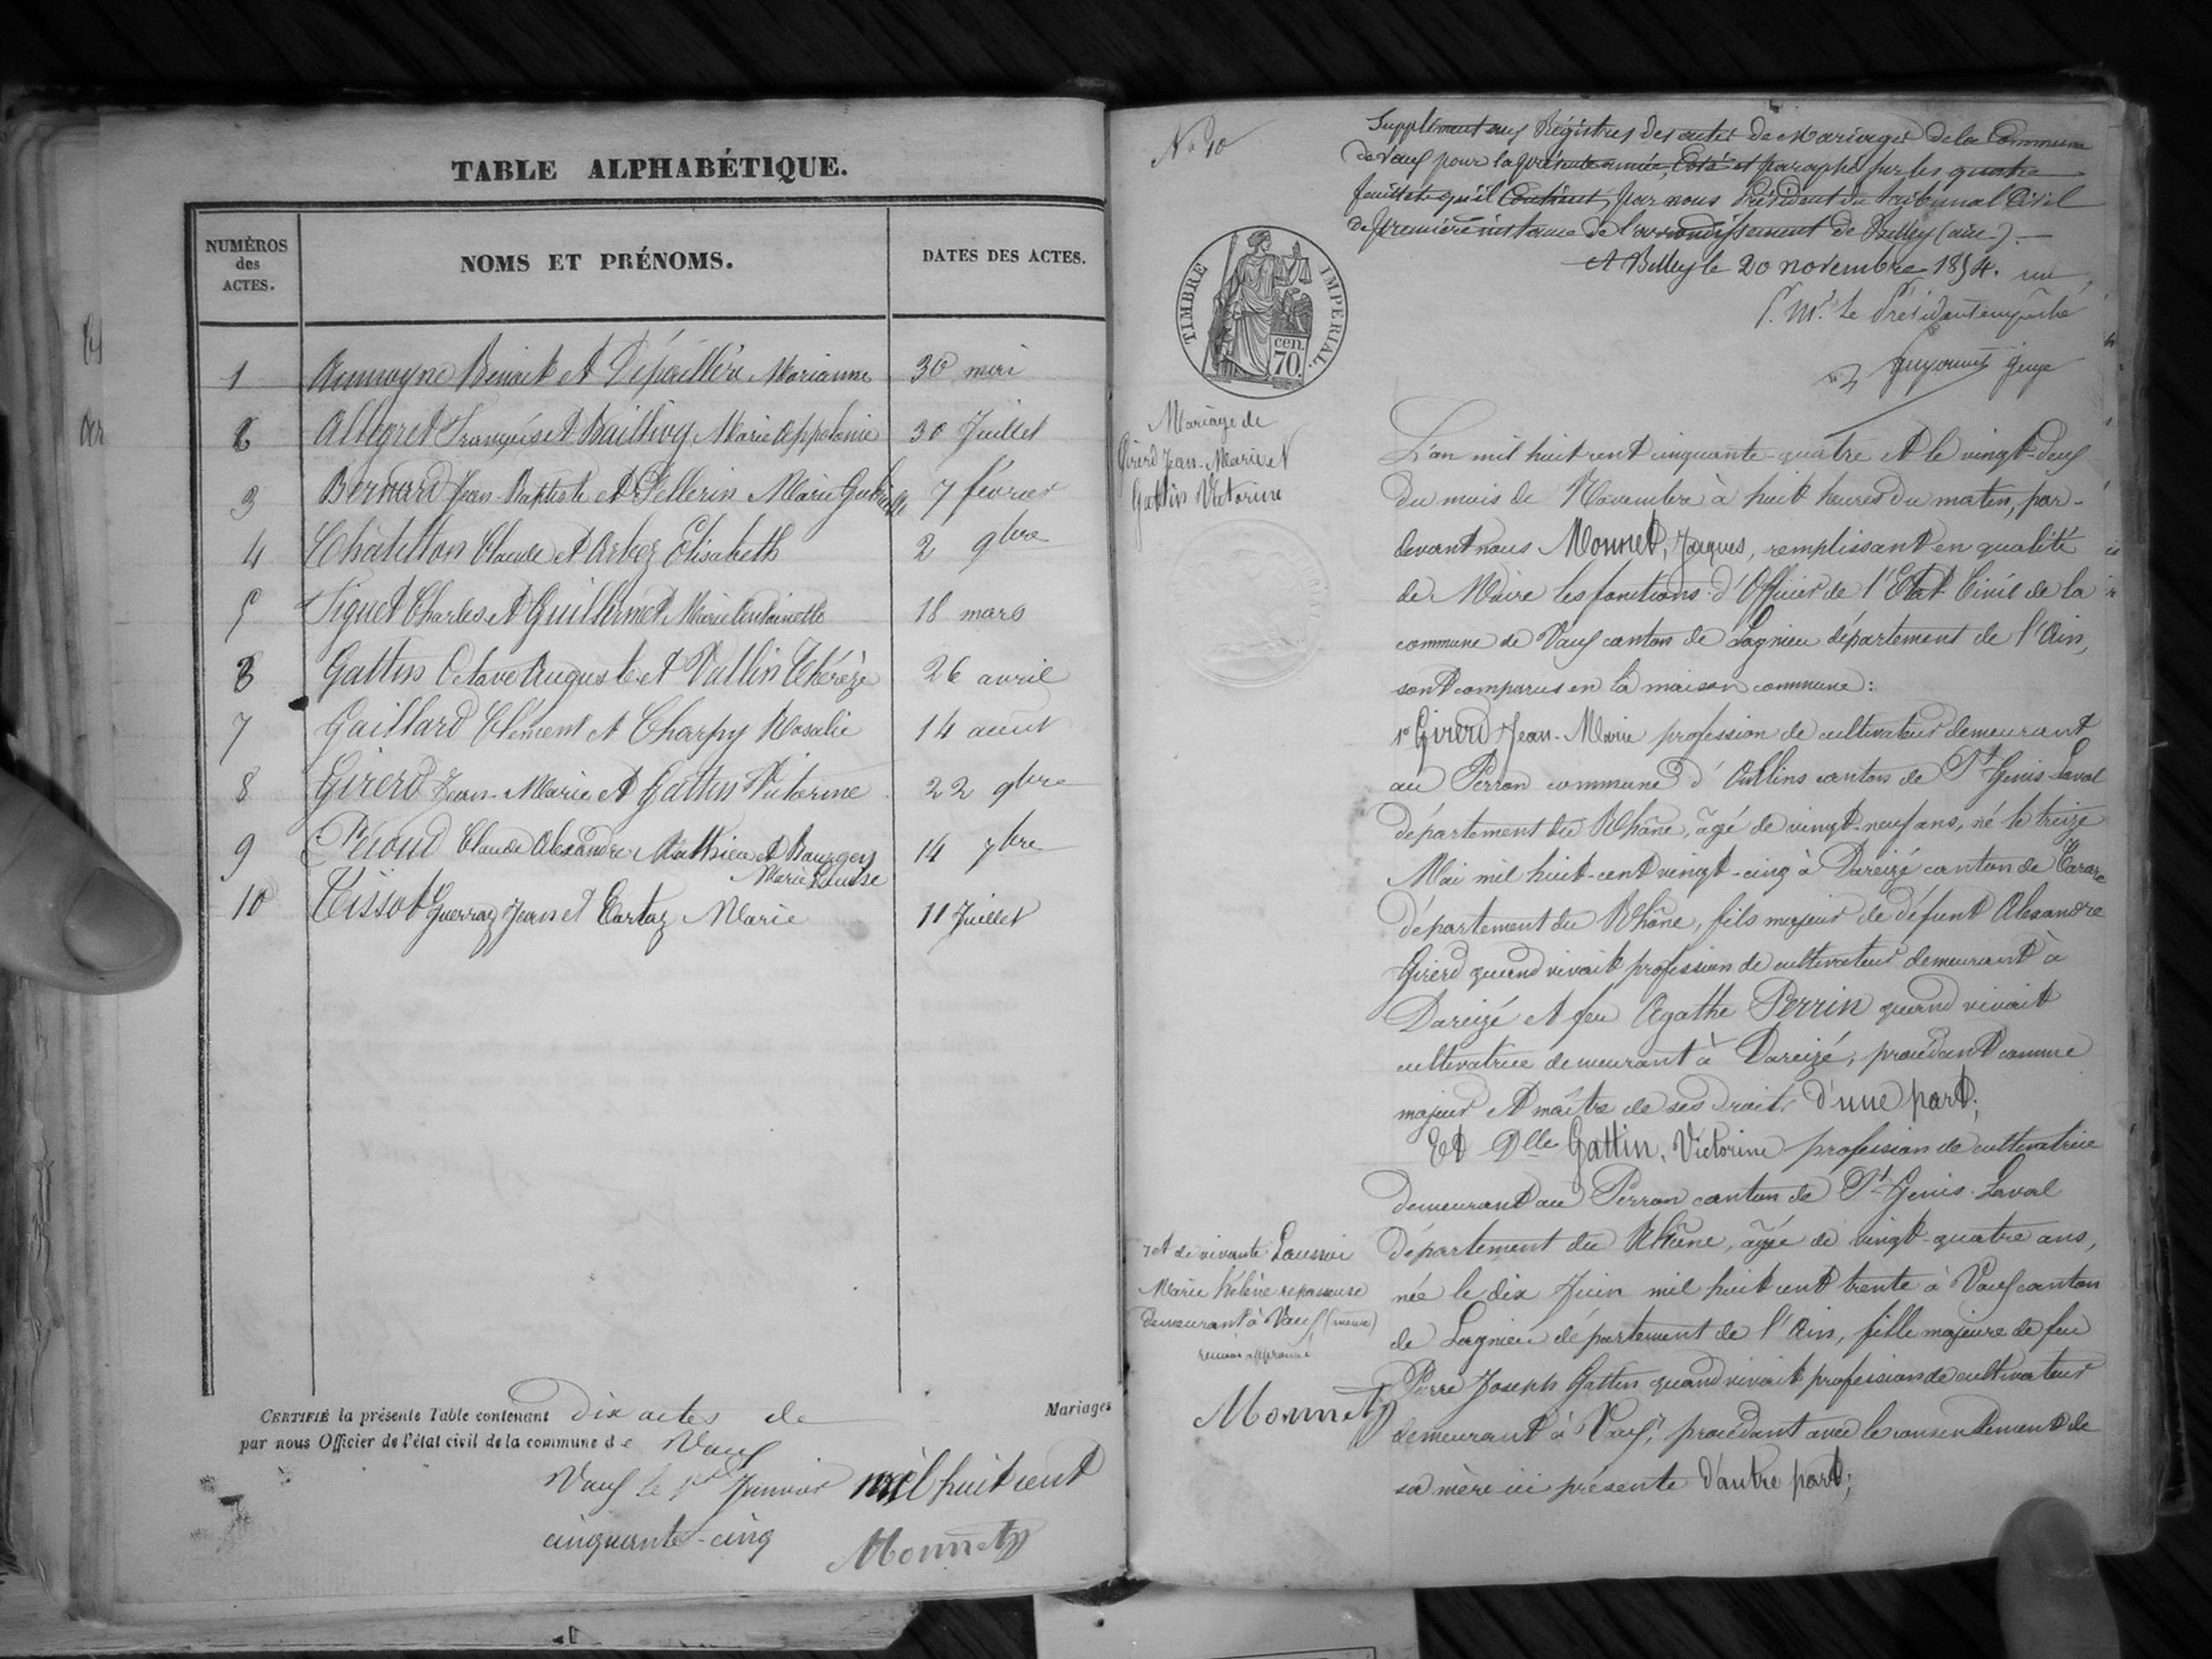 TABLE ALPHABÉTIQUE.
NUMÉROS des ACTES.
NOMS ET PRÉNOMS.
DATES DES ACTES.
1 Aumoyne Benoit et Marianne 30 mai
2 Allegret François et Marie Appolonie 30 Juillet
3 Bernard Jean-Baptiste et Pellerin Marie 7 février
4 Châtillon Claude et Arbez Elisabeth 2 9bre
5 Charles et Guillermet Marie Antoinette 18 mars
6 Gattin Octave Auguste et Vallin Thérèze 26 avril
7 Gaillard Clément et Charpy Rosalie 14 aout
8 Girerd Jean-Marie et Gattin Victorine 22 9bre
9 Claude Alexandre Mathieu et Bourgey 14 7bre
Marie Louise
10 Tissot Guerraz Jean et Cartaz Marie 11 Juillet
CERTIFIÉ la présente Table contenant dix actes de Mariages
par nous Officier de l'état civil de la commune de Vaux
Vaux le 1er Janvier mil huit cent
cinquante-cinq
Monnet
No 10
Supplément aux Régistres des actes de Mariages de la Commune
de Vaux pour la présente année, Coté et paraphé sur les quatre
feuillets qu'il Contient, par nous Président du tribunal Civil
de première instance de l'arrondissement de Belley (ain). —
A Belley le 20 novembre 1854.
P. Mr. Le Président empêché
juge
TIMBRE IMPERIAL.
cen. 70.
Mariage de
Girerd Jean-Marie et
Gattin Victorine
L'an mil huit cent cinquante-quatre et le vingt-deux
du mois de Novembre à huit heures du matin, par-
devant nous Monnet, Jaques, remplissant en qualité
de Maire les fonctions d'Officier de l'Etat Civil de la
commune de Vaux canton de Lagnieu département de l'Ain,
sont comparus en la maison commune:
1° Girerd Jean-Marie profession de cultivateur demeurant
au Perron commune d'Oullins canton de St Genis Laval
département du Rhône, âgé de vingt-neuf ans, né le treize
Mai mil huit-cent vingt-cinq à Dareizé canton de Tarare
département du Rhône, fils majeur de défunt Alexandre
Girerd quand vivait profession de cultivateur demeurant à
Dareizé et feu Agathe Perrin quand vivait
cultivatrice demeurant à Dareizé, procédant comme
majeur et maître de ses droits d'une part;
Et Dlle Gattin, Victorine profession de cultivatrice
demeurant au Perron canton de St Genis-Laval
département du Rhône, âgée de vingt-quatre ans,
née le dix Juin mil huit cent trente à Vaux canton
de Lagnieu département de l'Ain, fille majeure de feu
Pierre Joseph Gattin quand vivait profession de cultivateur
demeurant à Vaux, procédant avec le consentement de
sa mère ici présente d'autre part;
et de vivante
Marie Hélène repasseuse
demeurant à Vaux
renvoi approuvé
Monnet